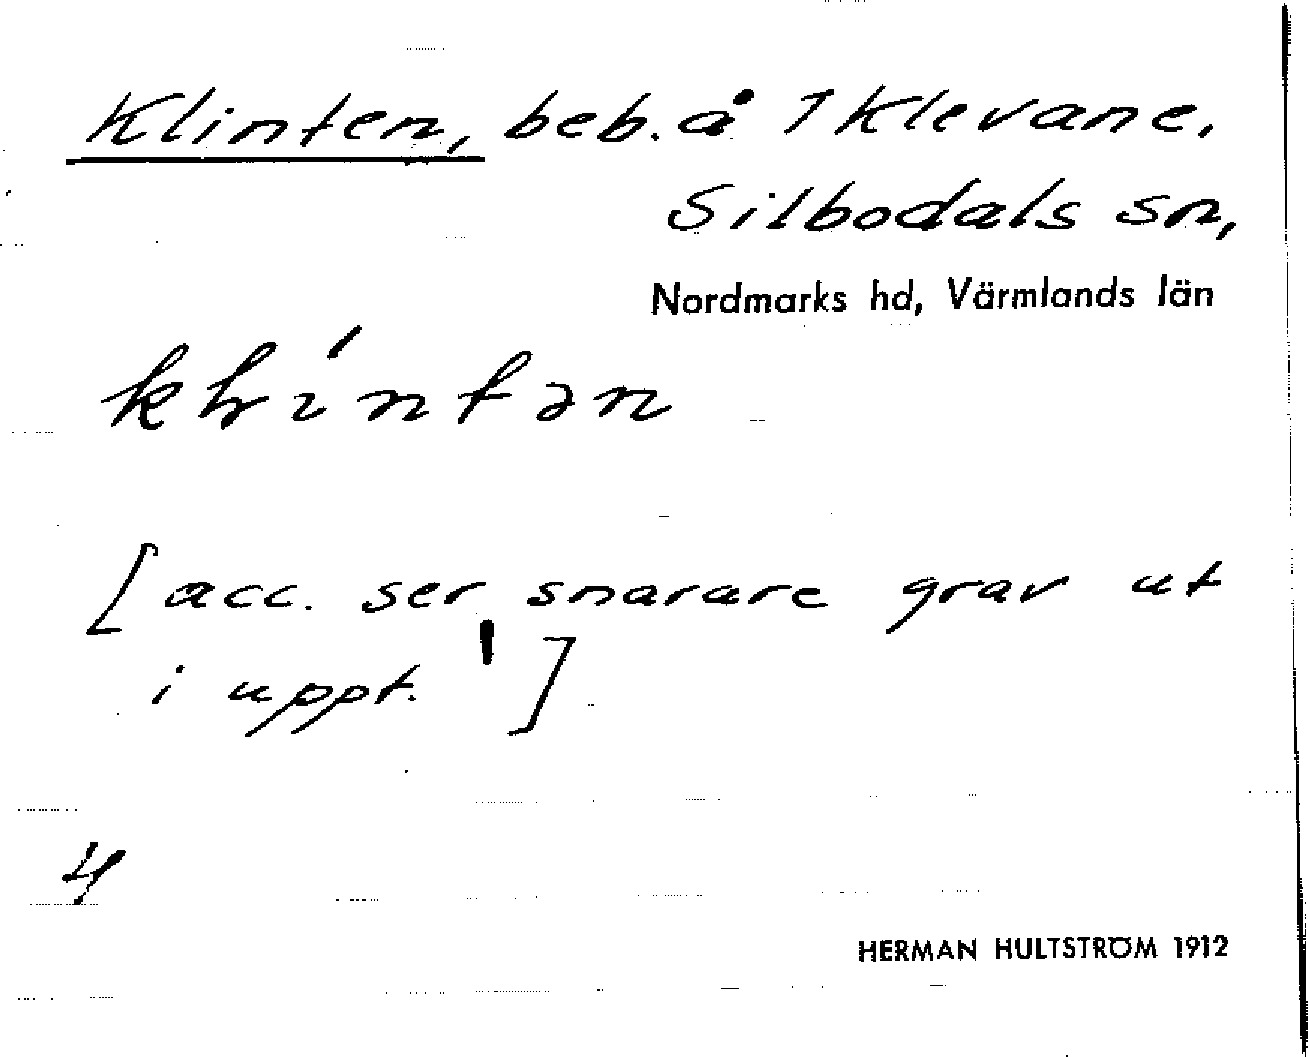 Klinten, beb. å 1 Klevane,
Silbodals sn,
Nordmarks hd, Värmlands län
[acc. ser snarare grav ut
i uppt. ']
4
HERMAN HULTSTRÖM 1912